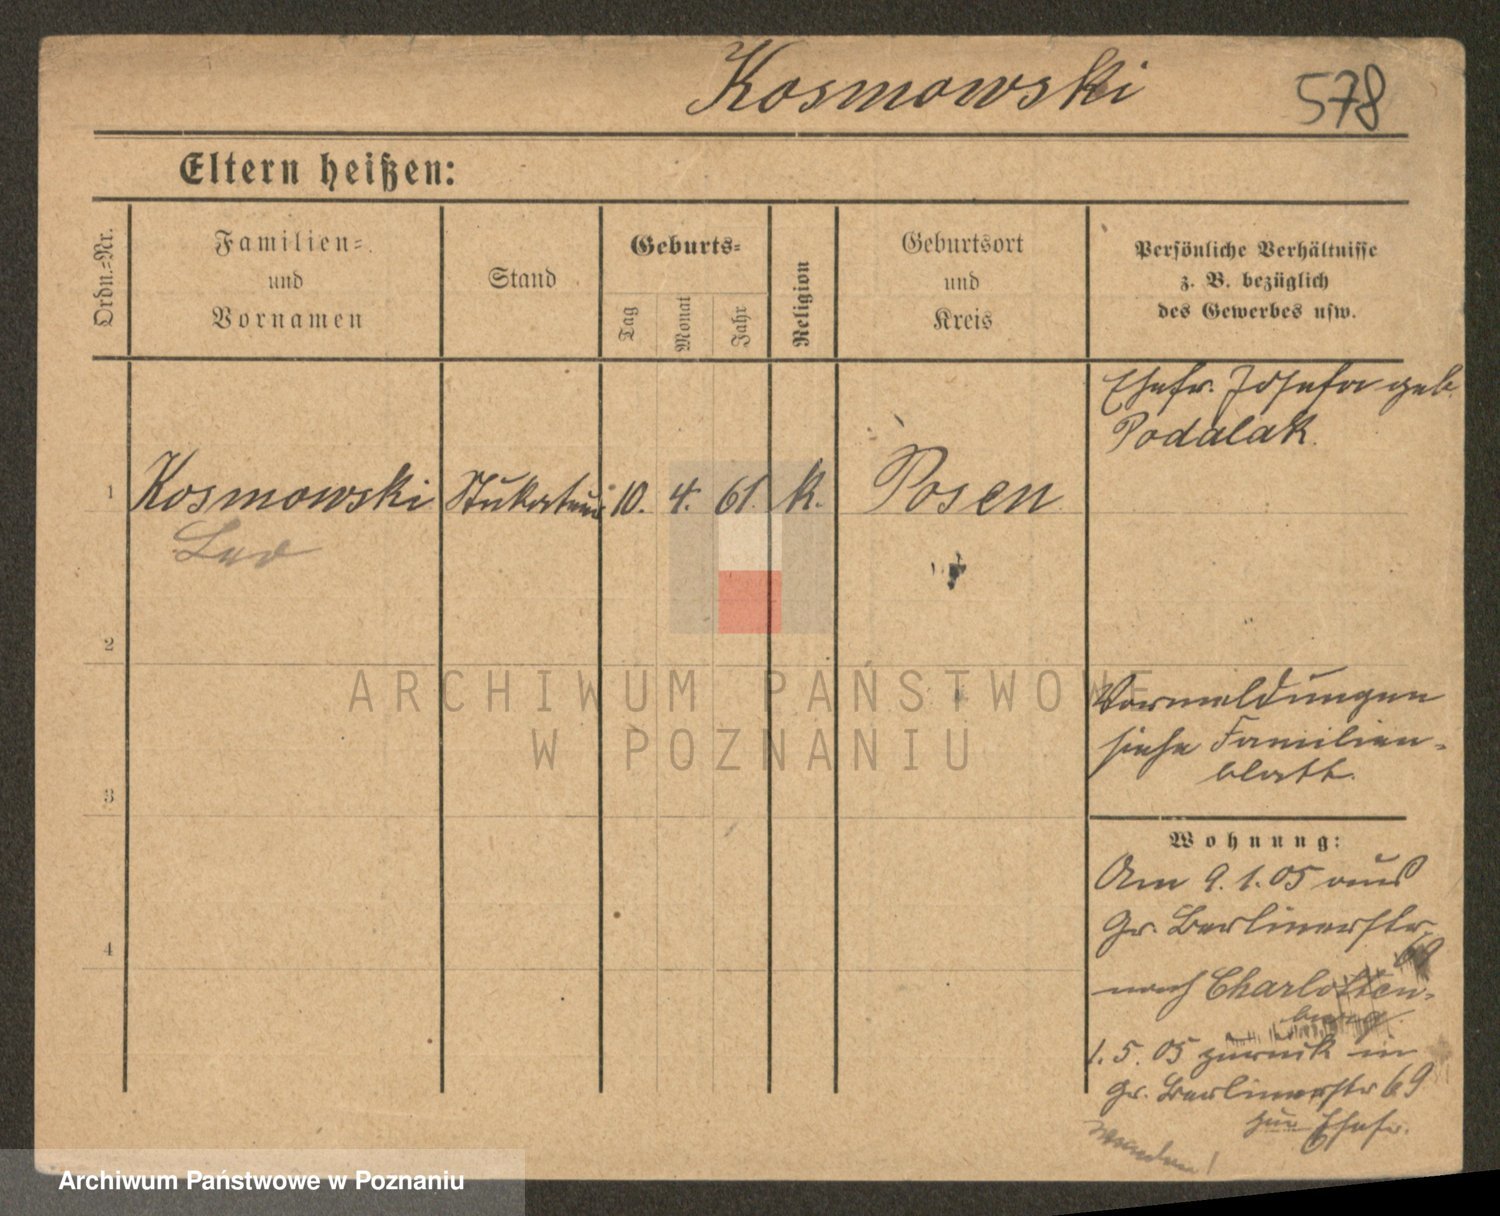 Kosmowski 578
Eltern heißen:
Ordn.=Nr.
Familien=
und
Vornamen
Stand
Geburts=
Tag
Monat
Jahr
Religion
Geburtsort
und
Kreis
Persönliche Verhältnisse
z. B. bezüglich
des Gewerbes usw.
Ehefr. Josefa geb.
Podalak.
1 Kosmowski Stukateur 10. 4. 61. k. Posen
Leo
2
Vormeldungen
siehe Familien-
blatt.
3
Wohnung:
Am 9.1.05 aus
Gr. Berlinerstr.
69
nach Charlotten-
burg.
4
1.5.05 zurück in
Gr. Berlinerstr 69
zur Ehefr.
ARCHIWUM PAŃSTWOWE
W POZNANIU
Archiwum Państwowe w Poznaniu